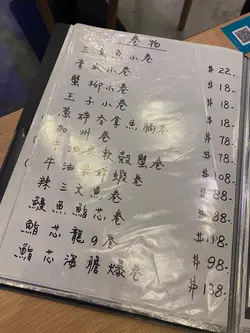 卷物
三文魚小卷 $22.-
青瓜小卷 $18.-
蟹柳小卷 $18.-
玉子小卷 $18.-
蔥碎吞拿魚腩卷 $78.-
加州卷 $78.-
牛油果軟殼蟹卷 $78.-
牛油果 蝦卷 $88.-
辣三文魚卷 $88.-
鰻魚鮨芯卷 $108.-
鮨芯龍の卷 $98.-
鮨芯海膽爆卷 $138.-